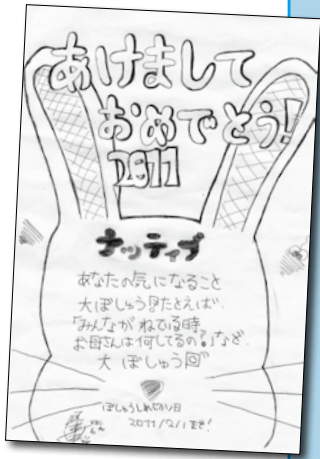 あけまして
おめでとう!
2011
ナッティブ
あなたの気になること
大ぼしゅう!たとえば、
「みんなが ねてる時、
お母さんは何してるの?」など。
大 ぼしゅう
ぼしゅうしめきり日
2011/2/1まで!